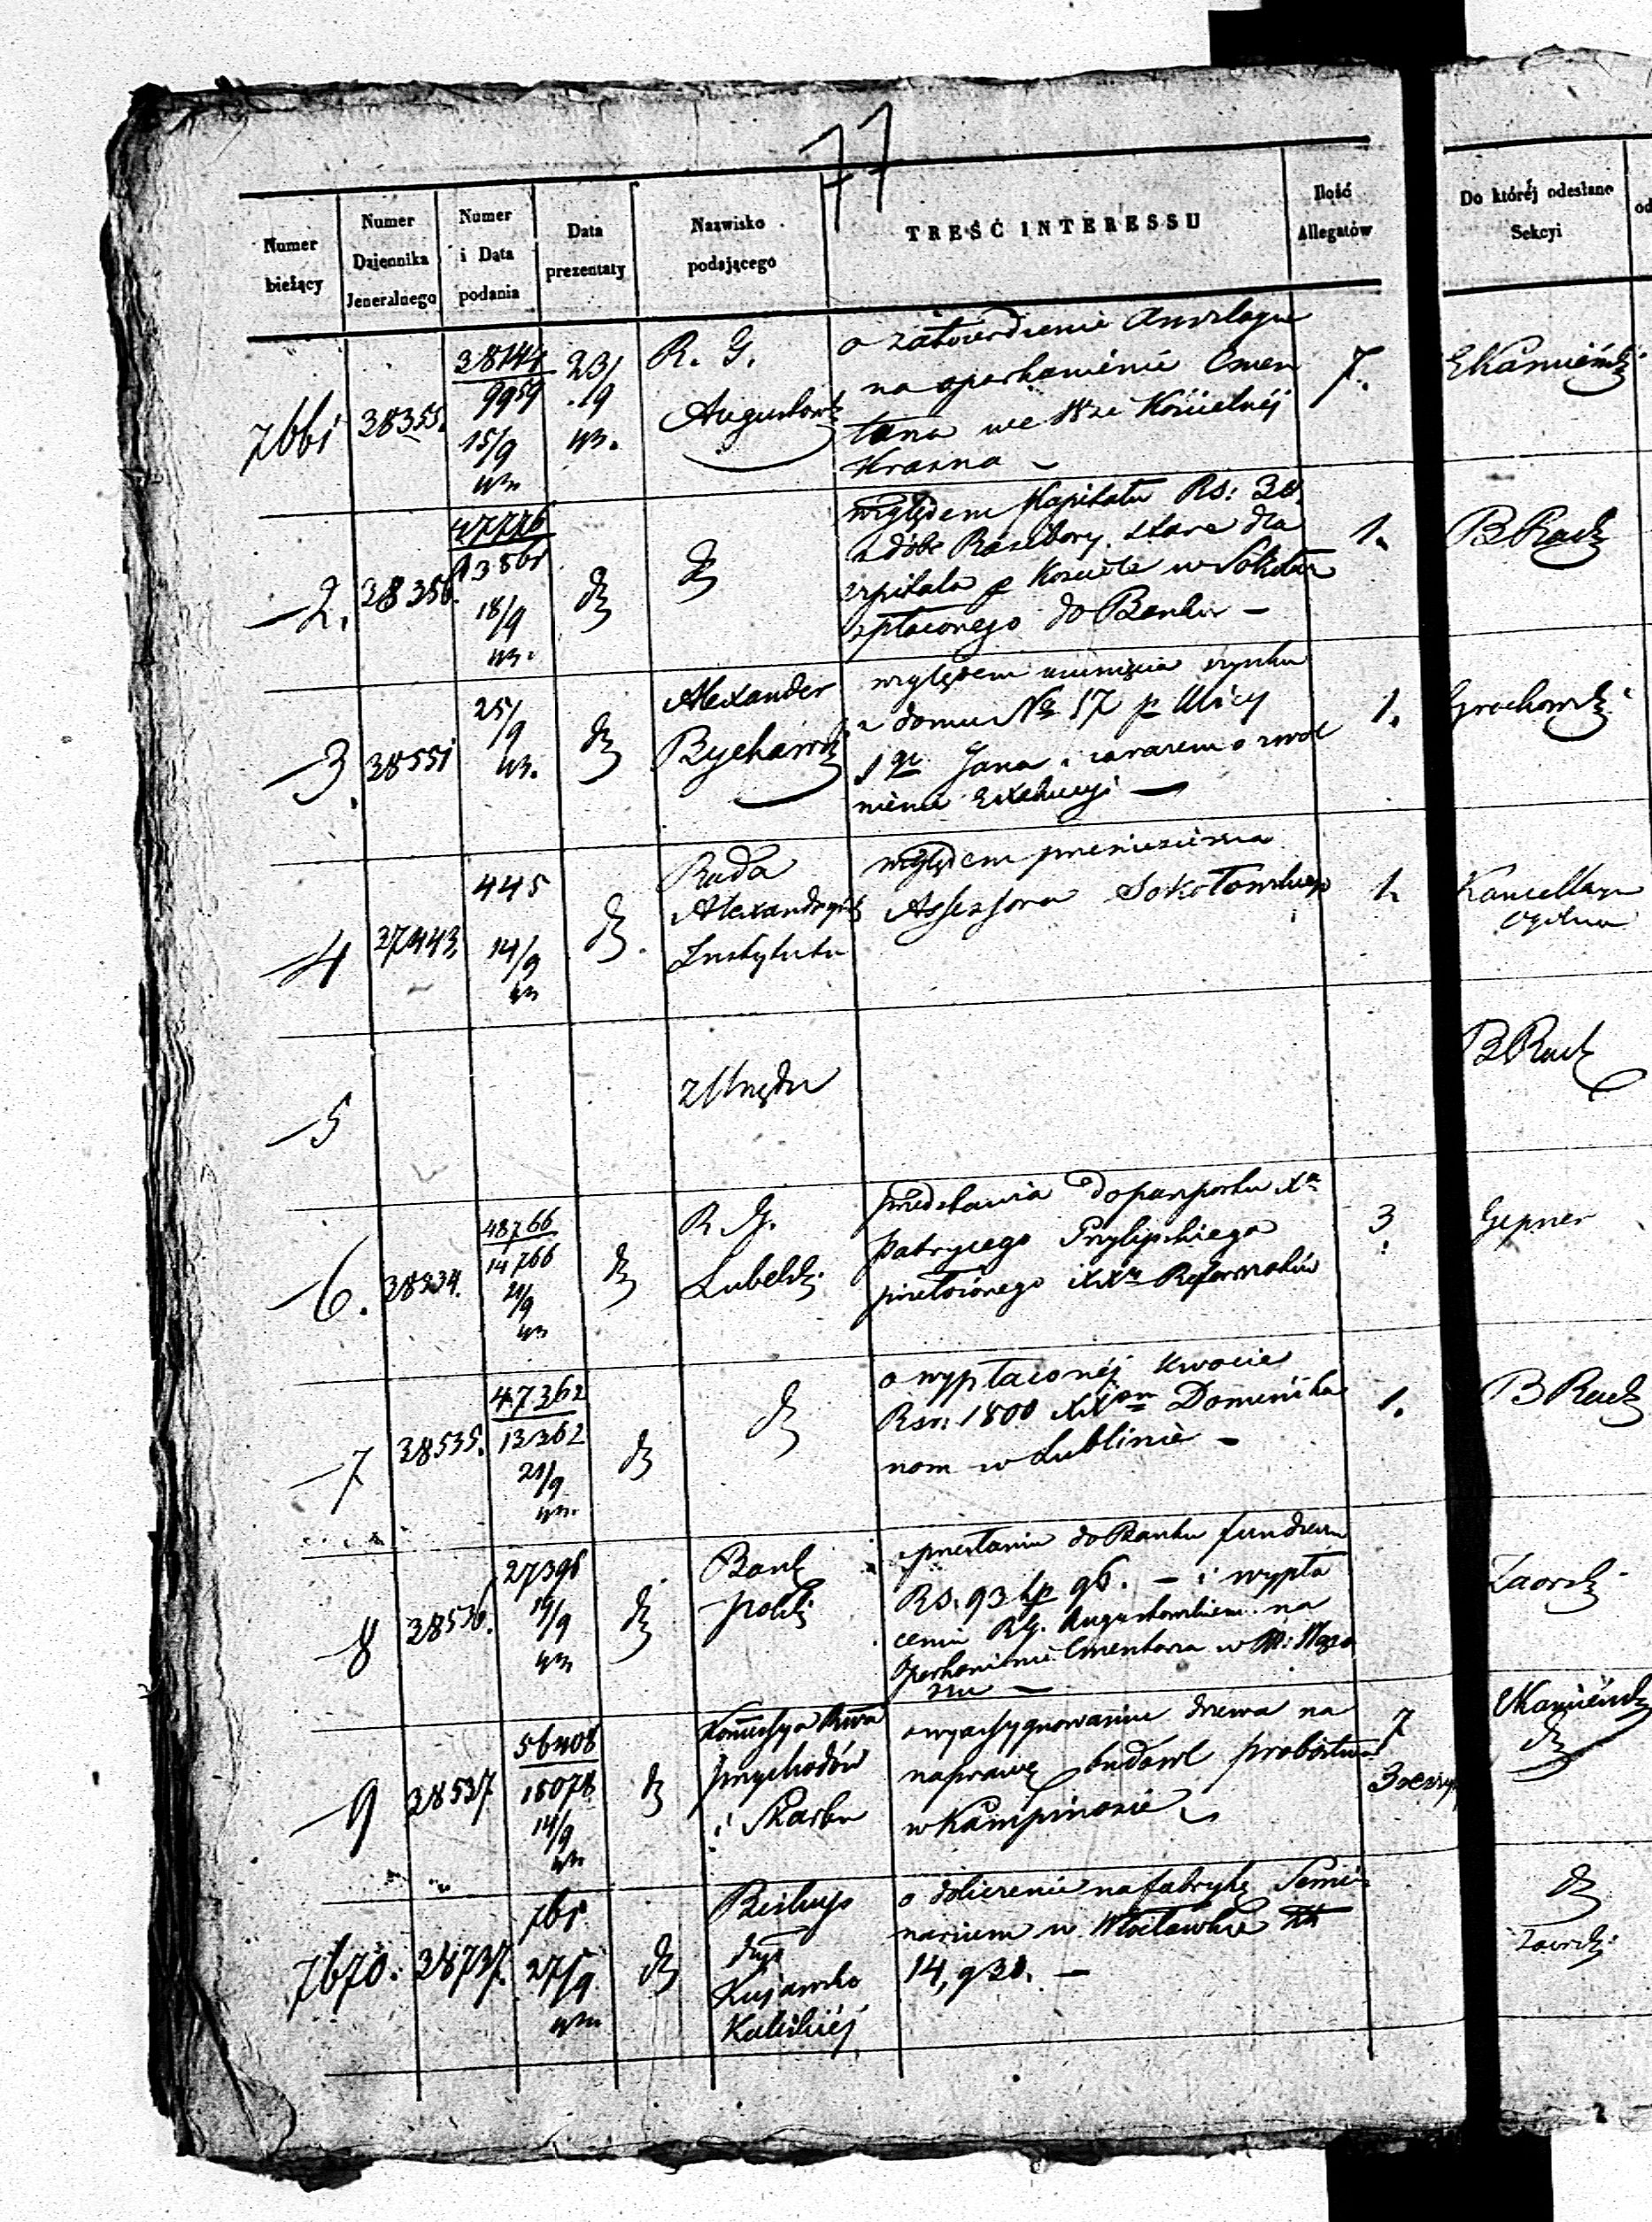 77
Numer bieżący
Numer Dziennika Jeneralnego
Numer i Data podania
Data prezentaty
Nazwisko podającego
TREŚĆ INTERESSU
Ilość Allegatów
Do któréj odesłano Sekcyi
od
7661
38355.
28144
9959
15/9
23/9
R. G.
Augustowsk
o zatwierdzenie Anszlagu
na oparkanienie Cmen
tarza we Wsi Kościelnéj
Krasna –
7.
EKamieńsk
–2.
38356.
47776
13861
18/9
względem Kapitału Rs: 30
z dóbr Raszbory stare dla
szpitala Kościoła w Sokołow
spłaconego do Banku –
1.
B Rach
–3.
38551
25/9
Alexander
Bychaws
względem usunięcia szynku
z domu No 57 p Ulicy
Sgo Jana i zarazem o zwol
nienie Exekucyi –
1.
Grochowsk
–4
37443
445
14/9
Rada
Alexandryjsk
Instytutu
względem przeniesienia
Assessora Sokołowskiego
1.
Kancellarya
Ogólna
–5
z Urzędu
B Rach
–6.
28534.
48766
14766
21/9
R. G.
Lubelsk
przedstawia do paszportu Xa
Patrycego Przylipskiego
przełożonego XXw Reformatów
3
Gepner
–7
38535.
47362
13362
21/9
o wypłaconéj kwocie
Rsr. 1800 XXom Dominika
nom w Lublinie –
1.
B Rach
–8
38536.
27398
19/9
Bank
Polski
o przesłaniu do Banku funduszu
Rs. 93 kp 96. – i wypła
ceniu R.G. Augustowskiemu na
oparkanienie Cmentarza w
Zaorsk
–9
38537
56408
18078
14/9
Komissya Rzwa
Przychodów
i Skarbu
o wyassygnowanie drzewa na
naprawę budowl probostwa
w Kampinosie
7
EKamieńsk
7670.
38737.
761
27/9
Biskup
Dyi
Kujawsko
Kaliskiéj
o doliczenie na fabrykę Semi
narium w Włocławku
14,930. –
Zaorsk